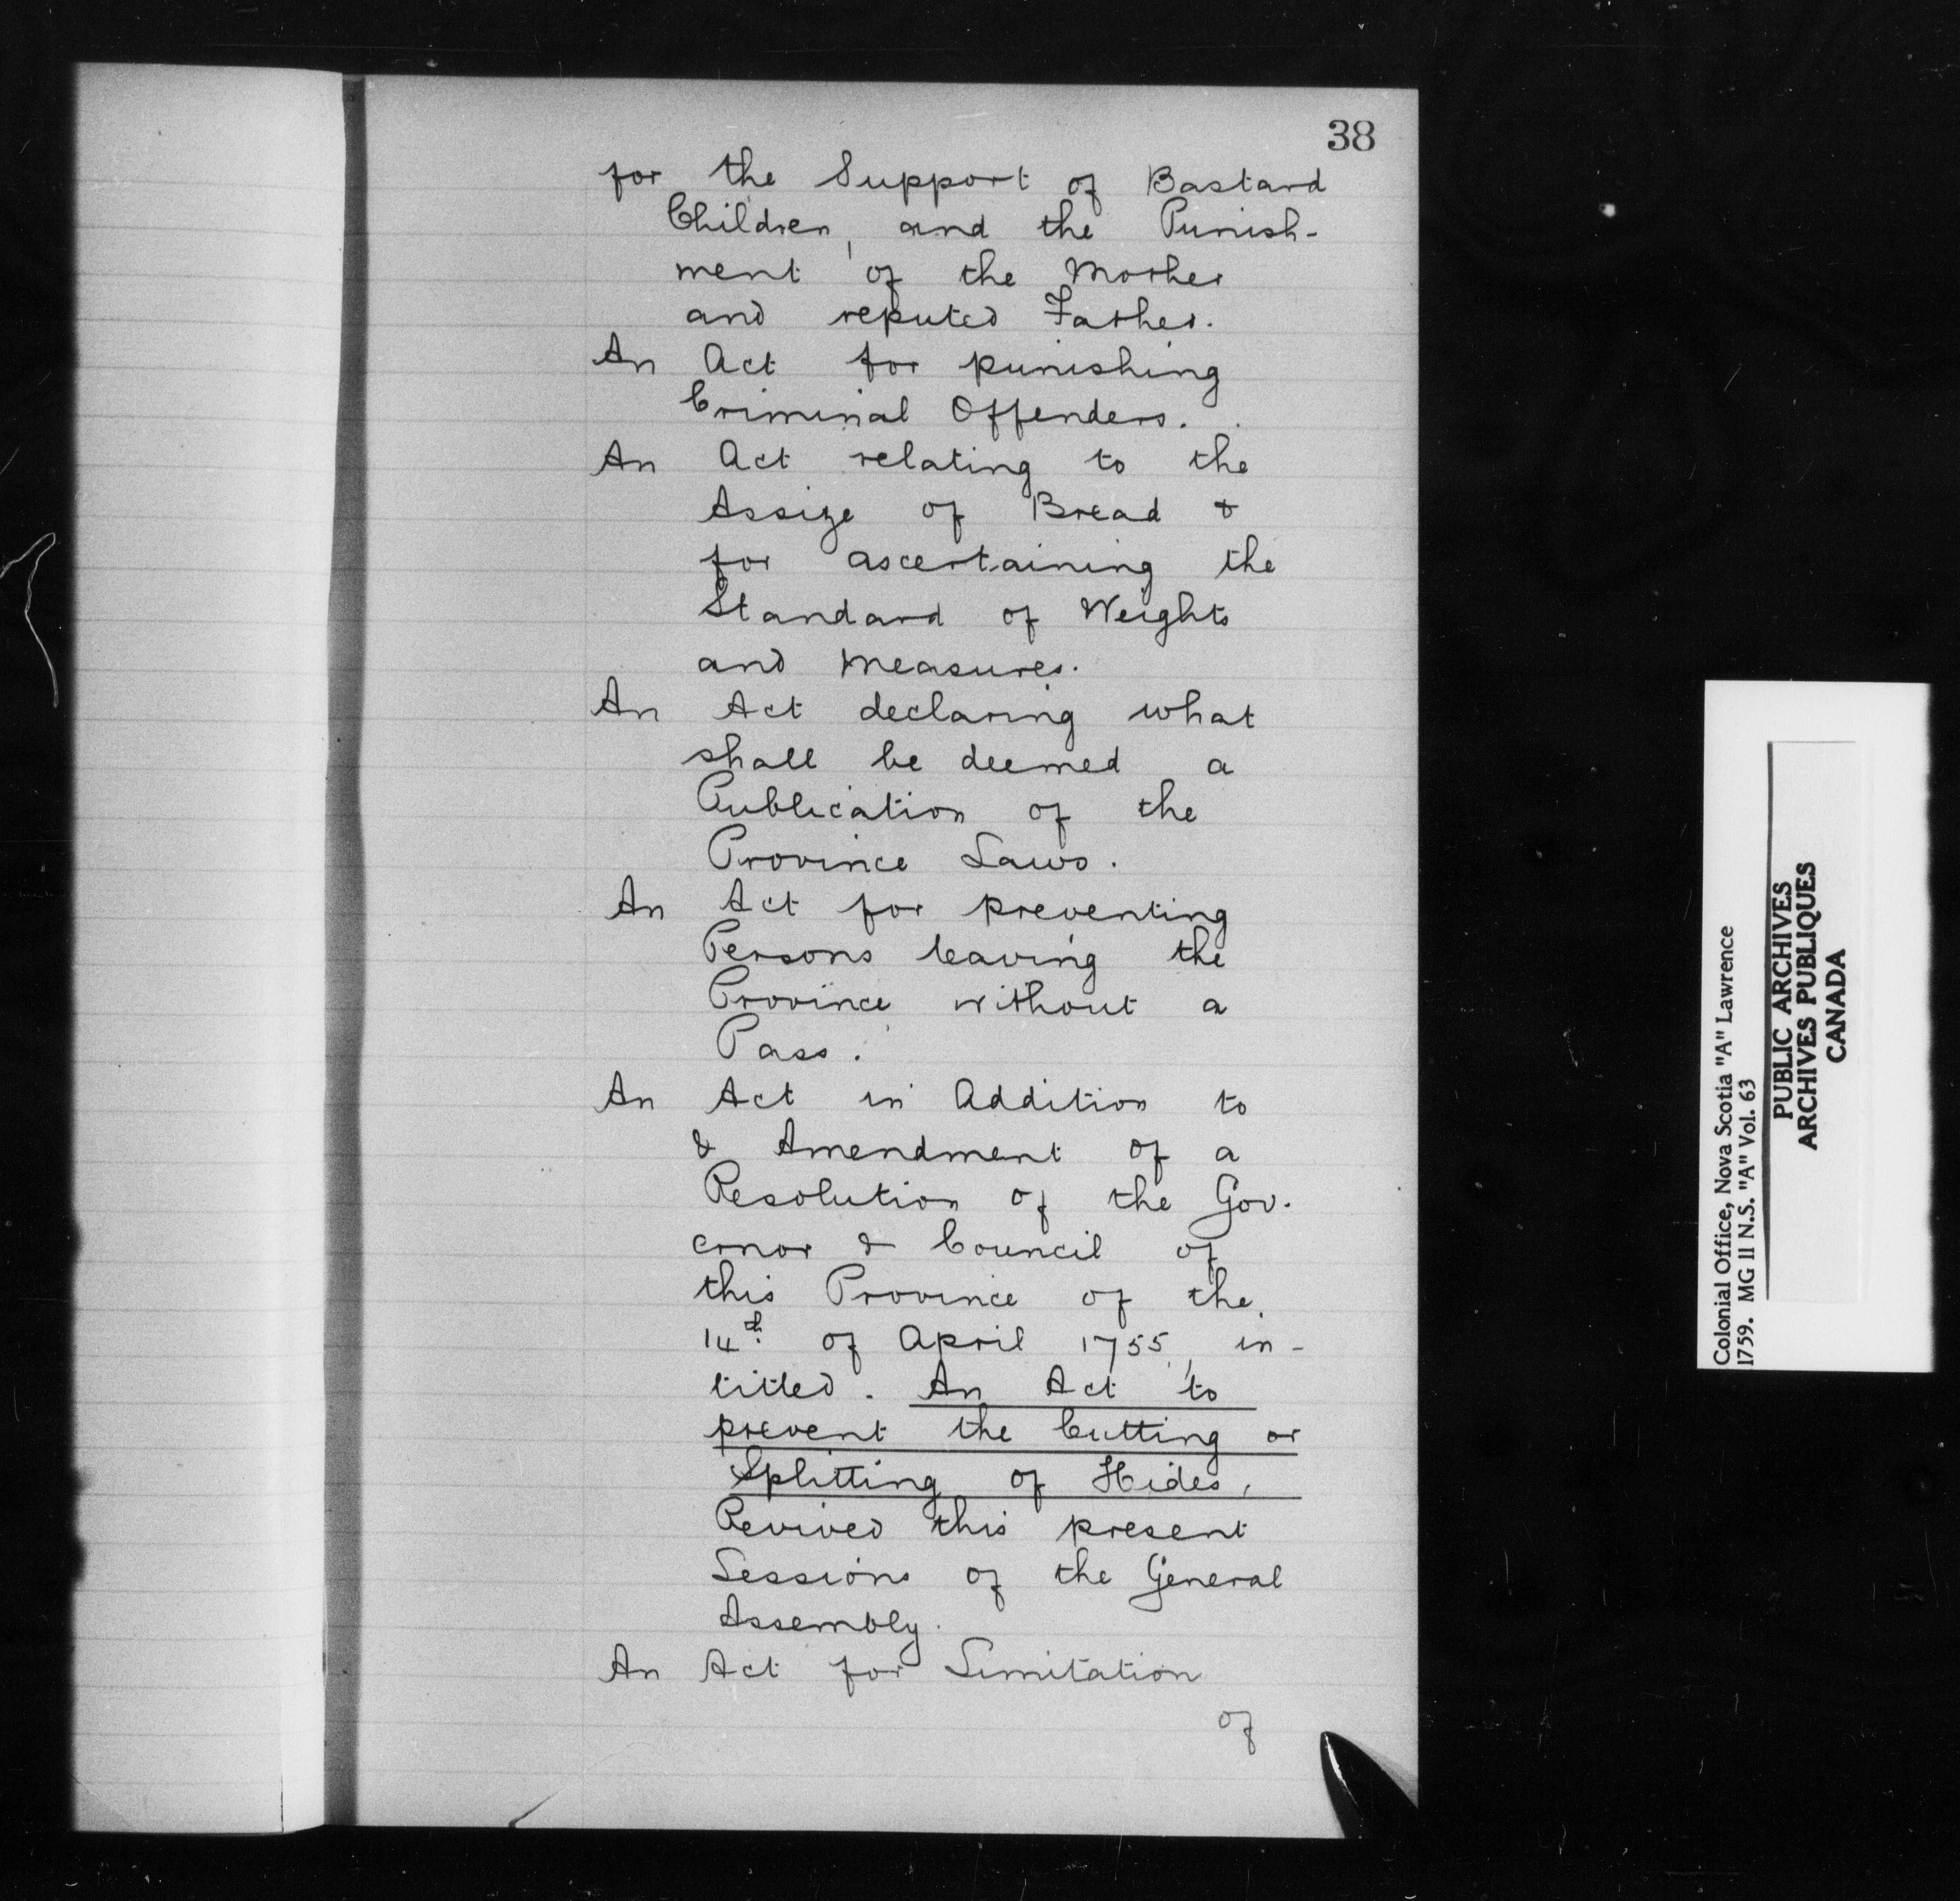 38
for the Support of Bastard
Children, and the Punish-
ment of the Mother
and reputed Father.
An Act for punishing
Criminal Offenders.
An Act relating to the
Assize of Bread &
for ascertaining the
Standard of Weights
and Measures.
An Act declaring what
shall be deemed a
Publication of the
Province Laws.
An Act for preventing
Persons leaving the
Province without a
Pass.
An Act in Addition to
& Amendment of a
Resolution of the Gov.
ernor & Council of
this Province of the
14th of April 1755, in-
titled. An Act to
prevent the Cutting or
Splitting of Hides,
Revived this present
Sessions of the General
Assembly.
An Act for Limitation
of
Colonial Office, Nova Scotia "A" Lawrence
1759. MG 11 N.S. "A" Vol. 63
PUBLIC ARCHIVES
ARCHIVES PUBLIQUES
CANADA